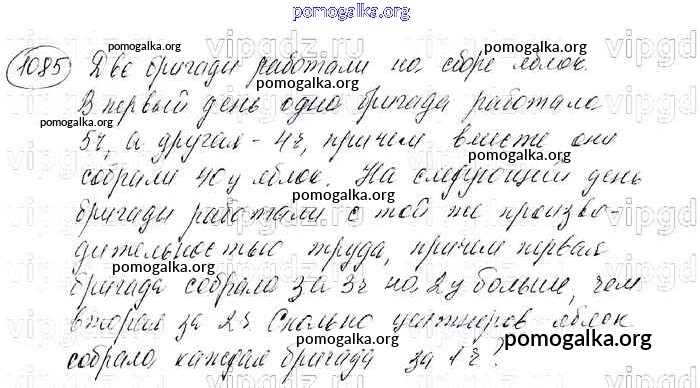 pomogalka.org
1085 Две бригады работали на сборе яблок.
В первый день одна бригада работала
5ч, а другая - 4ч, причем вместе они
собрали 40ц яблок. На следующий день
бригады работали с той же произво-
дительностью труда, причем первая
бригада собрала за 3ч на 2ц больше, чем
вторая за 2ч. Сколько центнеров яблок
собрала каждая бригада за 1ч?
pomogalka.org
pomogalka.org
pomogalka.org
pomogalka.org
pomogalka.org
pomogalka.org
pomogalka.org
pomogalka.org